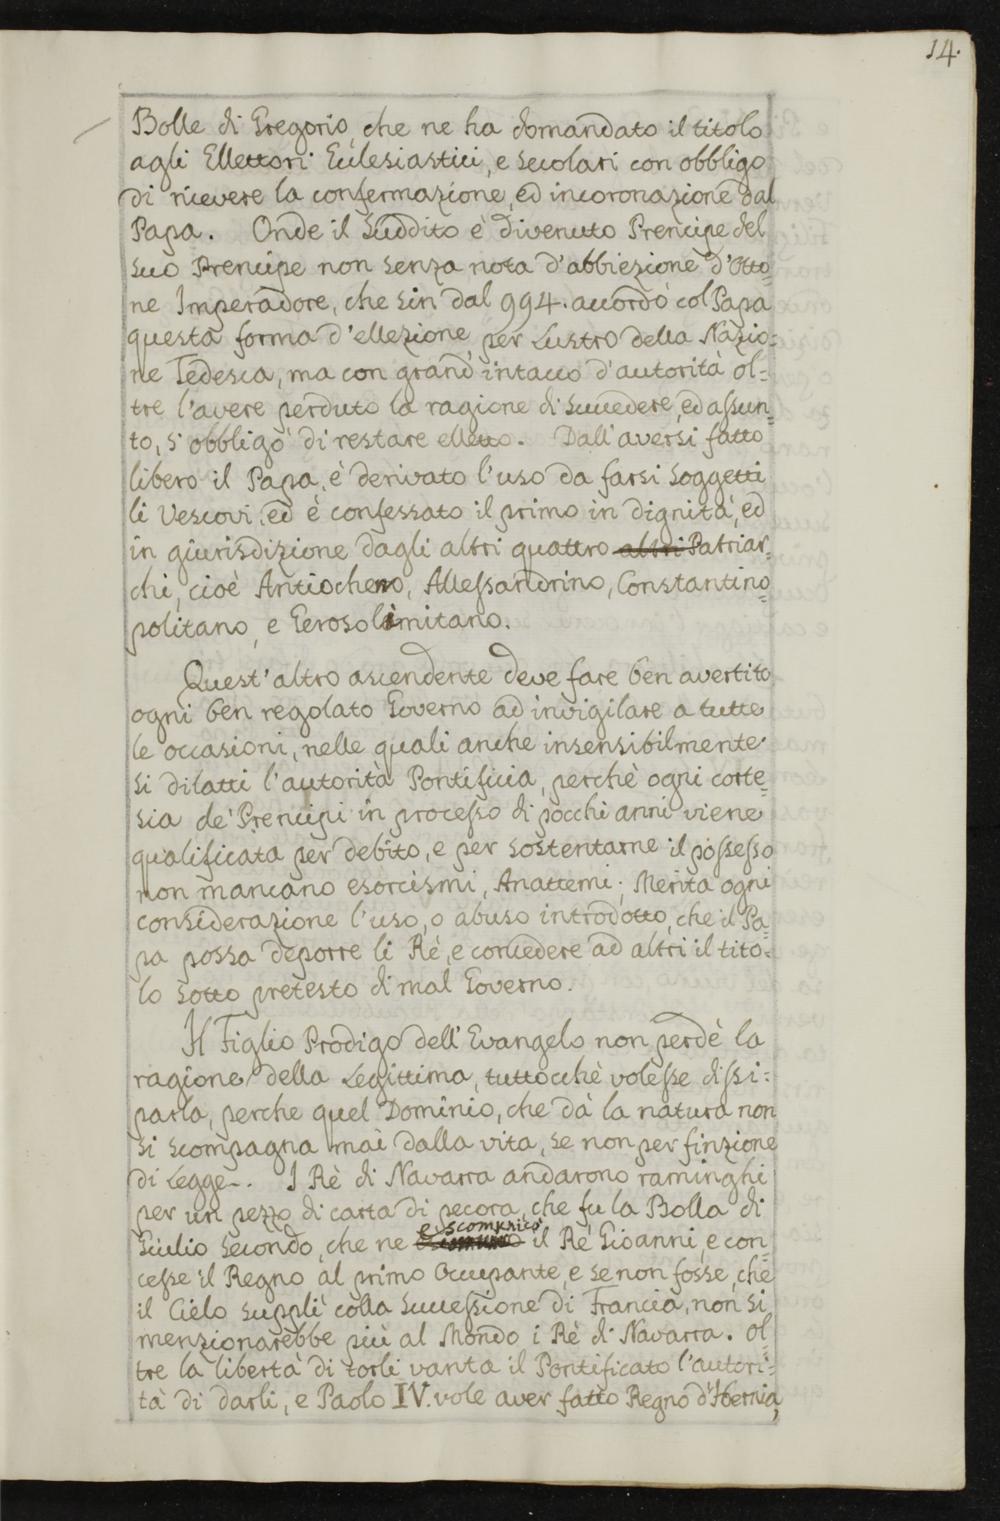 14.
Bolle di Gregorio, che ne ha domandato il titolo
agli Ellettori Eclesiastici, e secolari con obbligo
di ricevere la confermazione, ed incoronazione dal
Papa. Onde il Suddito è divenuto Prencipe del
suo Prencipe non senza nota d'abbiezione d'Otto=
ne Imperadore, che sin dal 994. accordò col Papa
questa forma d'ellezione, per Lustro della Nazio=
ne Tedesca, ma con grand' intacco d'autorità ol=
tre l'avere perduto la ragione di succedere, ed assun=
to, s'obbligò di restare elletto. Dall'aversi fatto
libero il Papa, è derivato l'uso da farsi soggetti
li Vescovi, ed è confessato il primo in dignità, ed
in giurisdizione dagli altri quattro altri Patriar=
chi, cioè Antiocheno, Allessandrino, Constantino=
politano, e Gerosolimitano.
Quest'altro ascendente deve fare ben avertito
ogni ben regolato Governo ad invigilare a tutte
le occasioni, nelle quali anche insensibilmente
si dilatti l'autorità Pontificia, perchè ogni corte=
sia de' Prencipi in processo di pocchi anni viene
qualificata per debito, e per sostentarne il possesso
non mancano esorcismi, Anattemi; Merita ogni
considerazione l'uso, o abuso introdotto, che il Pa=
pa possa deporre li Rè, e concedere ad altri il tito=
lo sotto pretesto di mal Governo.
Il Figlio Prodigo dell'Evangelo non perdè la
ragione della Legittima, tuttocchè volesse dissi=
parla, perche quel Dominio, che dà la natura non
si scompagna mai dalla vita, se non per finzione
di Legge. I Rè di Navarra andarono raminghi
per un pezzo di carta di pecora, che fu la Bolla di
escomunicò
Giulio Secondo, che ne il Rè Gioanni, e con=
cesse il Regno al primo Occupante, e se non fosse, che
il Cielo supplì colla successione di Francia, non si
menzionarebbe più al Mondo i Rè di Navarra. Ol=
tre la libertà di torli vanta il Pontificato l'autori=
tà di darli, e Paolo IV. vole aver fatto Regno d'Ibernia,